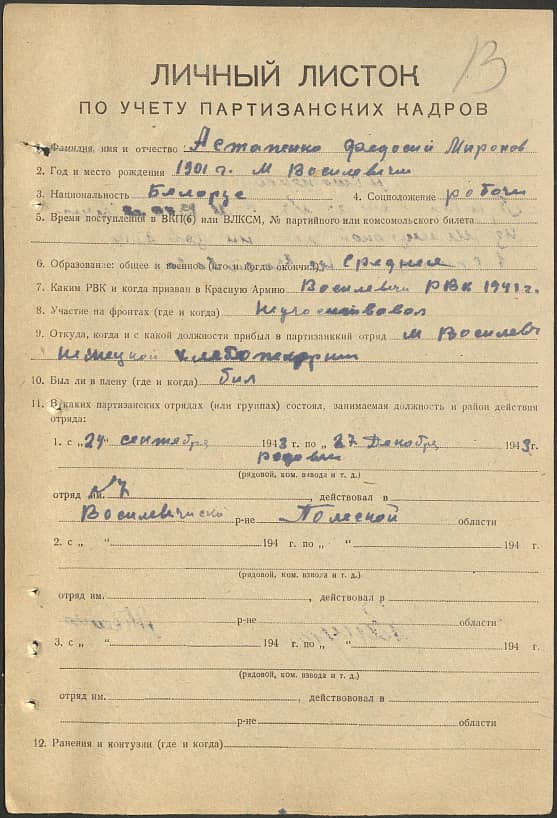 13
ЛИЧНЫЙ ЛИСТОК
ПО УЧЕТУ ПАРТИЗАНСКИХ КАДРОВ
1. Фамилия, имя и отчество Асташенко Федосий Миронов
2. Год и место рождения 1901 г. М Василевичи
3. Национальность Белорус 4. Соцположение рабочи
5. Время поступления в ВКП(б) или ВЛКСМ, № партийного или комсомольского билета
6. Образование: общее и военное (что и когда окончил) Среднее
7. Каким РВК и когда призван в Красную Армию Василевичи РВК 1941 г.
8. Участие на фронтах (где и когда)
9. Откуда, когда и с какой должности прибыл в партизанский отряд М Василевич
немецкой
10. Был ли в плену (где и когда) бил
11. В каких партизанских отрядах (или группах) состоял, занимаемая должность и район действия
отряда:
1. с „24“ сентября 1943 г. по „27“ Декабря 1943 г.
рядовы
(рядовой, ком. взвода и т. д.)
отряд им. №7, действовал в
Василевичиски р-не Полеской области
2. с „ “ 194 г. по „ “ 194 г.
(рядовой, ком. взвода и т. д.)
отряд им. , действовал в
р-не области
3. с „ “ 194 г. по „ “ 194 г.
(рядовой, ком. взвода и т. д.)
отряд им. , действововал в
р-не области
12. Ранения и контузии (где и когда)